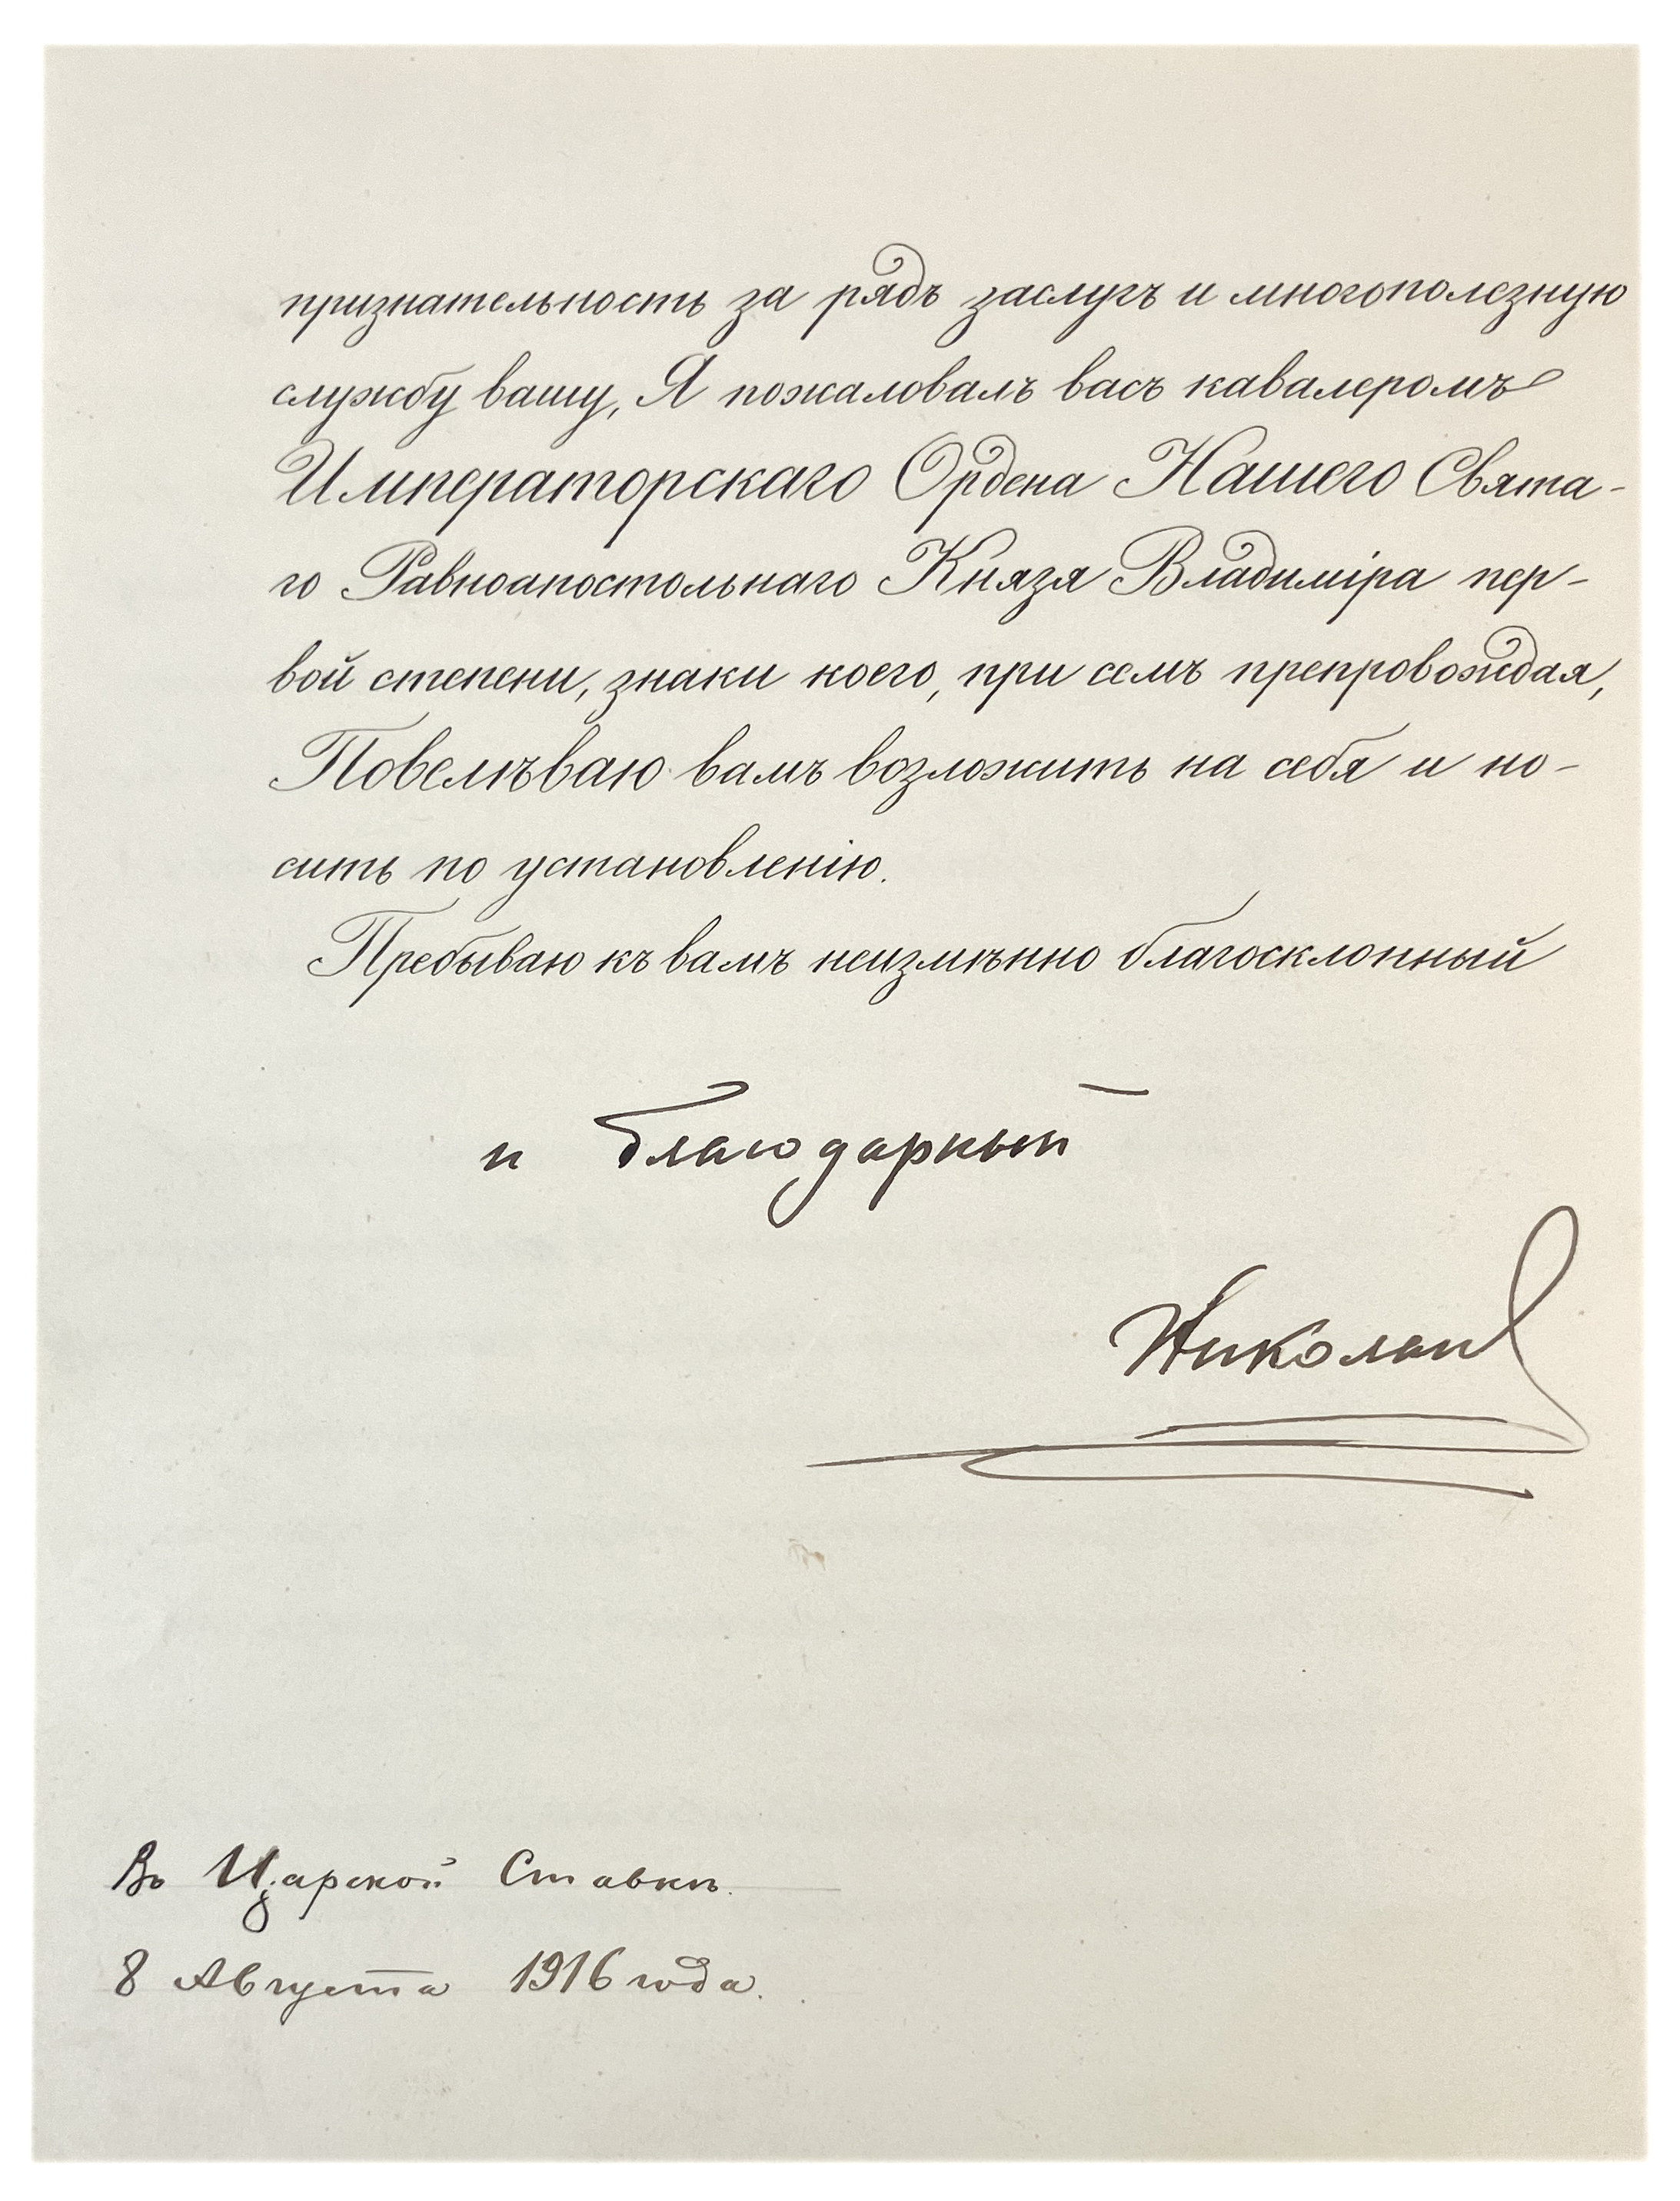 признательность за рядъ заслугъ и многополезную
службу вашу, Я пожаловалъ васъ кавалеромъ
Императорскаго Ордена Нашего Свята-
го Равноапостольнаго Князя Владиміра пер-
вой степени, знаки коего, при семъ препровождая,
Повелѣваю вамъ возложить на себя и но-
сить по установленію.
Пребываю къ вамъ неизмѣнно благосклонный
и благодарный
Николай
Въ Царской Ставкѣ.
8 Августа 1916 года.